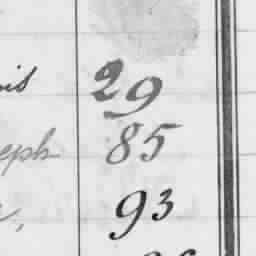 29
eph 85
93